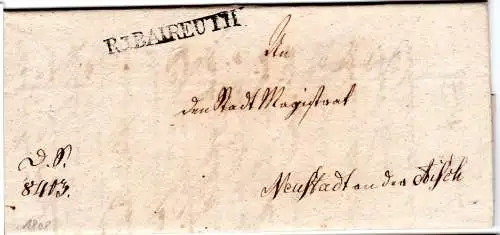 R.3.BAIREUTH.
An
den Stadt Magistrat
D. S.
8413.
Neustadt an der Aisch
1808